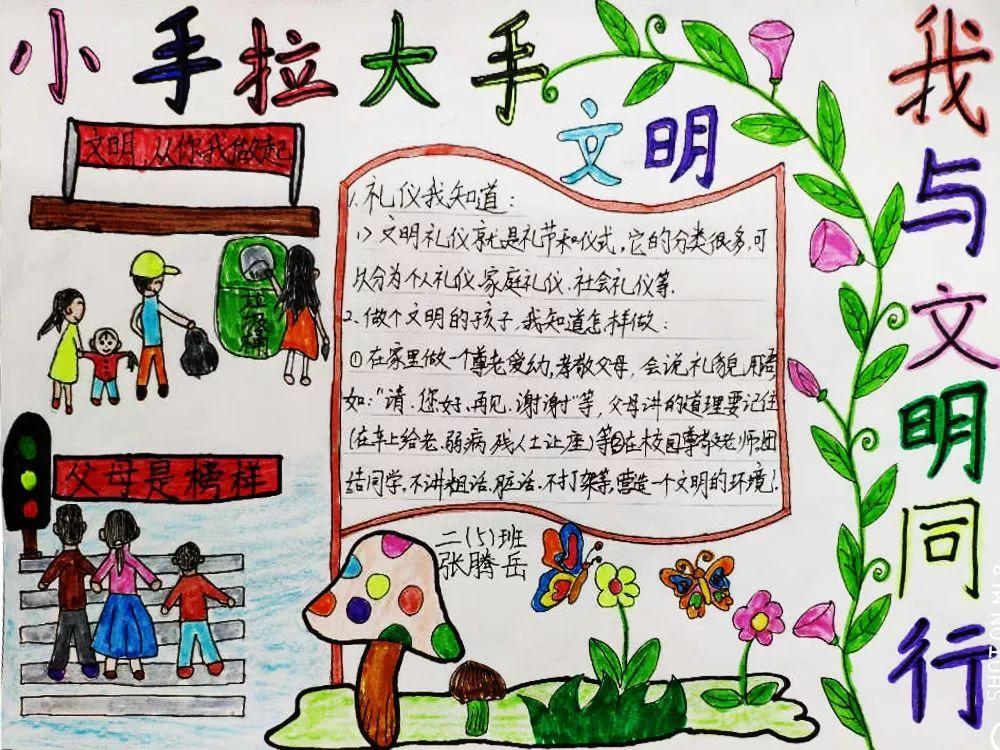 小手拉大手
我与文明同行
文明
文明,从你我做起
垃圾桶
父母是榜样
1. 礼仪我知道:
1> 文明礼仪就是礼节和仪式。它的分类很多,可
以分为个人礼仪、家庭礼仪、社会礼仪等.
2、做个文明的孩子,我知道怎样做:
①在家里做一个尊老爱幼,孝敬父母,会说礼貌用语
如:“请、您好、再见、谢谢”等,父母讲的道理要记住
(在车上给老、弱病、残人士让座)等②在校园尊敬老师,团
结同学,不讲粗话、脏话、不打架等,营造一个文明的环境!
二(5)班
张腾岳